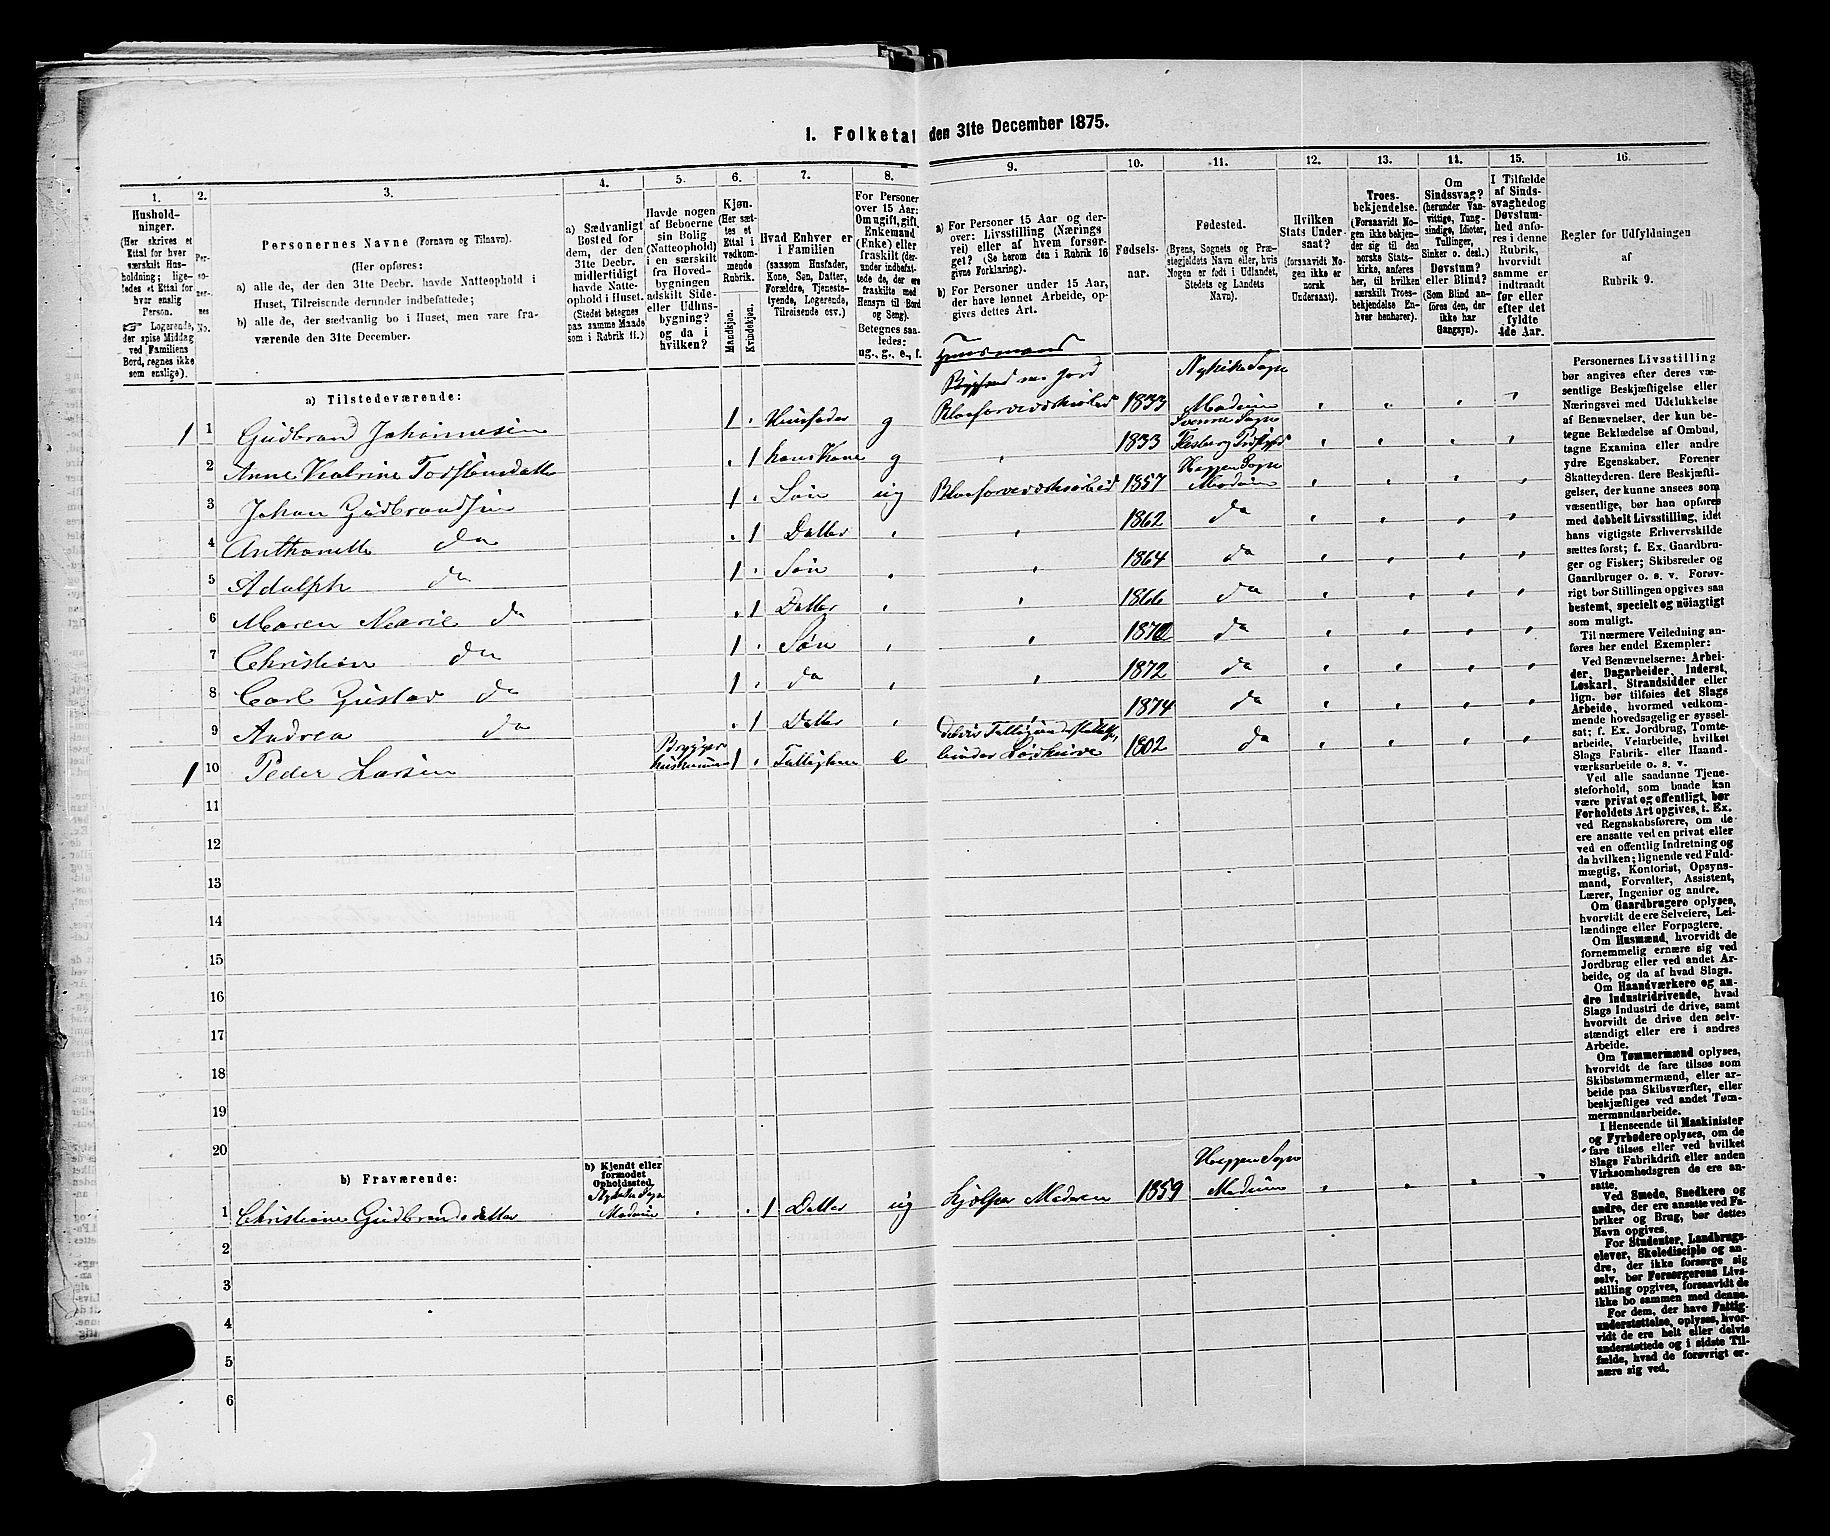 I. Folketa den 31te December 1875.
1. 2. 3. 4. 5. 6. 7. 8. 9. 10. 11. 12. 13. 14. 15. 16.
Hushold-
ninger.
(Her skrives et
Ettal for hver
særskilt Hus-
holdning; lige-
ledes et Ettal for
hver enslig
Person.
☞ Logerende,
der spise Middag
ved Familiens
Bord, regnes ikke
som enslige).
Per-
so-
ner-
nes
No.
Personernes Navne (Fornavn og Tilnavn).
(Her opføres:
a) alle de, der den 31te Decbr. havde Natteophold i
Huset, Tilreisende derunder indbefattede;
b) alle de, der sædvanlig bo i Huset, men vare fra-
værende den 31te December.
a) Sædvanligt
Bosted for
dem, der den
31te Decbr.
midlertidigt
havde Natte-
ophold i Huset.
(Stedet betegnes
paa samme Maade
som i Rubrik 11.)
Havde nogen
af Beboerne
sin Bolig
(Natteophold)
i en særskilt
fra Hoved-
bygningen
adskilt Side-
eller Udhus-
bygning?
og da i
hvilken?
Kjøn.
(Her sæt-
tes et
Ettal i
vedkom-
mende
Rubrik.
Mandkjøn.
Kvindekjøn.
Hvad Enhver er
i Familien
(saasom Husfader,
Kone, Søn, Datter,
Forældre, Tjeneste-
tyende, Logerende,
Tilreisende osv.)
For Personer
over 15 Aar:
Om ugift, gift,
Enkemand
(Enke) eller
fraskilt (der-
under indbefat-
tede de, der ere
fraskilte med
Hensyn til Bord
og Seng).
Betegnes saa-
ledes:
ug., g., e., f.
a) For Personer 15 Aar og der-
over: Livsstilling (Nærings
vei) eller af hvem forsør-
get? (Se herom den i Rubrik 16
givne Forklaring).
b) For Personer under 15 Aar,
der have lønnet Arbeide, op-
gives dettes Art.
Fødsels-
aar.
Fødested.
(Byens, Sognets og Præ-
stegjeldets Navn eller, hvis
Nogen er født i Udlandet,
Stedets og Landets
Navn).
Hvilken
Stats Under-
saat?
(forsaavidt No-
gen ikke er
norsk
Undersaat).
Troes-
bekjendelse.
(Forsaavidt No-
gen ikke bekjen-
der sig til den
norske Stats-
kirke, anføres
her, til hvilken
særskilt Troes-
bekjendelse En-
hver henhører).
Om
Sindssvag?
(herunder Van-
vittige, Tung-
sindige, Idioter,
Tullinger,
Sinker o. desl.)
Døvstum?
eller Blind?
(Som Blind an-
føres den, der
ikke har
Gangsyn).
I Tilfælde
af Sinds-
svaghed og
Døvstum-
hed anfø-
res i denne
Rubrik,
hvorvidt
samme er
indtraadt
før eller
efter det
fyldte
4de Aar.
Regler for Udfyldningen
af
Rubrik 9.
a) Tilstedeværende:
1 1 Gudbrand Johannesen 1 Husfader g Husmand m. Jord Blaafarveværksarbeid 1833 Nykirke Sogn Modum
2 Anne Katrine Torstensdatter 1 hans Kone g 1833 Snarum Sogn
3 Johan Gudbrandsen 1 Søn ug Blaafarveværksarbeid 1857 Heggen Sogn Modum
4 Anthonette do 1 Datter 1862 do
5 Adolph do 1 Søn 1864 do
6 Maren Marie do 1 Datter 1866 do
7 Christian do 1 Søn 1870 do
8 Carl Gustav do 1 do 1872 do
9 Andrea do 1 Datter 1874 do
1 10 Peder Larsen 1 Fattiglem e binder 1802 do
11
12
13
14
15
16
17
18
19
20
b) Fraværende:
b) Kjendt eller
formodet
Opholdssted.
1 Christiane Gudbrandsdatter Nykirke Sogn Modum 1 Datter ug hjælper Moderen 1859 Heggen Sogn Modum
2
3
4
5
6
Personernes Livsstilling
bør angives efter deres væ-
sentlige Beskjæftigelse eller
Næringsvei med Udelukkelse
af Benævnelser, der kun be-
tegne Beklædelse af Ombud,
tagne Examina eller andre
ydre Egenskaber. Forener
Skatteyderen flere Beskjæfti-
gelser, der kunne ansees som
væsentlige, bør han opføres
med dobbelt Livsstilling, idet
hans vigtigste Erhvervskilde
sættes først; f. Ex. Gaardbru-
ger og Fisker; Skibsreder og
Gaardbruger o. s. v. Forøv-
rigt bør Stillingen opgives saa
bestemt, specielt og nøiagtig
som muligt.
Til nærmere Veiledning an-
føres her endel Exempler:
Ved Benævnelserne: Arbei-
der, Dagarbeider, Inderst,
Løskarl, Strandsidder eller
lign. bør tilføies det Slags
Arbeide, hvormed vedkom-
mende hovedsagelig er syssel-
sat; f. Ex. Jordbrug, Tomte-
arbeide, Veiarbeide, hvilket
Slags Fabrik- eller Haand-
værksarbeide o. s. v.
Ved alle saadanne Tjene-
steforhold, som baade kan
være privat og offentligt, bør
Forholdets Art opgives, t. Ex.
ved Regnskabsførere, om de
ere ansatte ved en privat eller
ved en offentlig Indretning og
da hvilken; lignende ved Fuld-
mægtig, Kontorist, Opsyns-
mand, Forvalter, Assistent,
Lærer, Ingeniør og andre.
Om Gaardbrugere oplyses,
hvorvidt de ere Selveiere, Lei-
lændinge eller Forpagtere.
Om Husmænd, hvorvidt de
fornemmelig ernære sig ved
Jordbrug eller ved andet Ar-
beide, og da af hvad Slags.
Om Haandværkere og an-
dre Industridrivende, hvad
Slags Industri de drive, samt
hvorvidt de drive den selv-
stændigt eller ere i andres
Arbeide.
Om Tømmermænd oplyses,
hvorvidt de fare tilsøs som
Skibstømmermænd, eller ar-
beide paa Skibsværfter, eller
beskjæftiges ved andet Tøm-
mermandsarbeide.
I Henseende til Maskinister
og Fyrbødere oplyses, om de
fare tilsøs eller ved hvilket
Slags Fabrikdrift eller anden
Virksomhedsgren de ere an-
satte.
Ved Smede, Snedkere og
andre, der ere ansatte ved Fa-
briker og Brug, bør dettes
Navn opgives.
For Studenter, Landbrugs-
elever, Skoledisciple og an-
dre, der ikke forsørge sig
selv, bør Forsørgerens Livs-
stilling opgives, forsaavidt de
ikke bo sammen med denne.
For dem, der have Fattig-
understøttelse, oplyses, hvor-
vidt de ere helt eller delvis
understøttede og i sidste Til-
fælde, hvad de forøvrigt er-
nære sig ved.